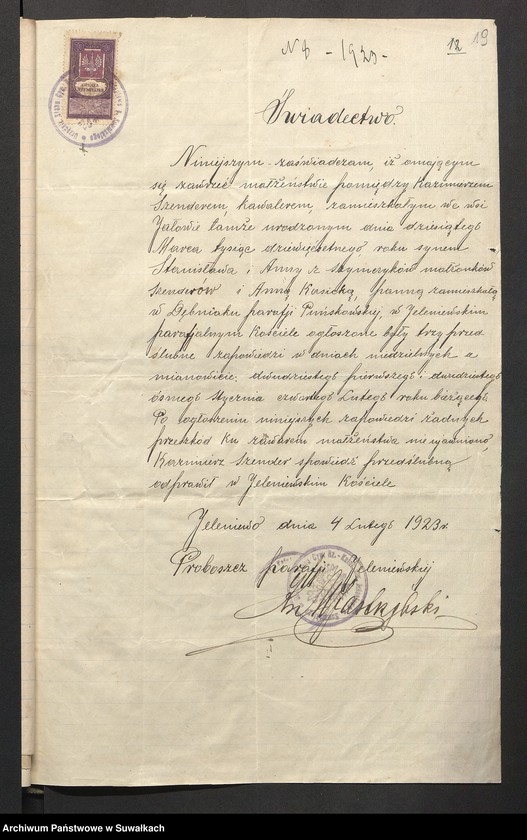 N 6 - 1923 -
12 19
Świadectwo.
Niniejszym zaświadczam, iż o mającym
się zawrzeć małżeństwie pomiędzy Kazimierzem
Szenderem, kawalerem, zamieszkałym we wsi
Jałowie tamże urodzonym dnia dziesiątego
Marca tysiąc dziewięćsetnego roku synem
Stanisława i Anny z Szymeryków małżonków
Szenderów i Anną Kasicką, panną zamieszkałą
w Dębniaku parafji Puńskowskiej, w Jeleniewskim
parafjalnym Kościele ogłoszone były trzy przed
ślubne zapowiedzi w dniach niedzielnych a
mianowicie; dwudziestego pierwszego i dwudziestego
ósmego Stycznia czwartego Lutego roku bieżącego
Po ogłoszeniu niniejszych zapowiedzi żadnych
przeszkód ku zawarciu małżeństwa nie ujawniono,
Kazimierz Szender spowiedź przedślubną
odprawił w Jeleniewskim Kościele
Jeleniewo dnia 4 Lutego 1923 r.
Proboszcz parafji Jeleniewskiej
Archiwum Państwowe w Suwałkach